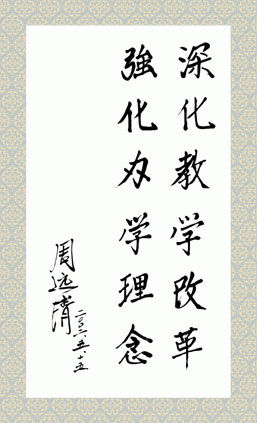 深化教学改革
強化办学理念
周远清
二〇一一五、十五